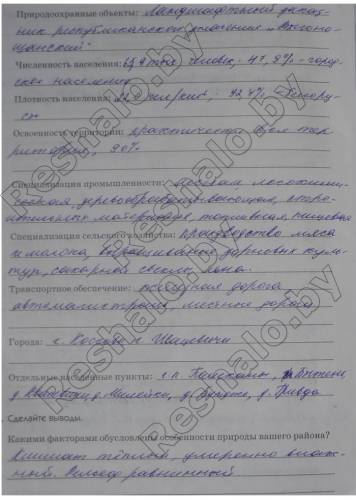 Природоохранные объекты: Ландшафтный заказ-
ник республиканского значения „Выгоно-
щанский"
Численность населения: тыс. человек, 47, 8% – город-
ское население
Плотность населения: чел/км², %
Освоенность территории: практически вся тер-
ритория, 90%
Специализация промышленности: лесная
деревообрабатывающая,
материалов, топливная, пищевая
Специализация сельского хозяйства: производство мяса
и молока, выращивание зерновых куль-
тур, сахарной свеклы, льна.
Транспортное обеспечение: железная дорога
автомагистрали, местные дороги
Города: г. Коссово и Ивацевичи
Отдельные населённые пункты: г.п. Телеханы, д. Бытень
д. Квасевичи, д. Милейки, д. д. Гривда
Сделайте выводы.
Какими факторами обусловлены особенности природы вашего района?
Климат тёплый, умеренно влаж-
ный. Рельеф равнинный
Reshalo.by
Reshalo.by
Reshalo.by